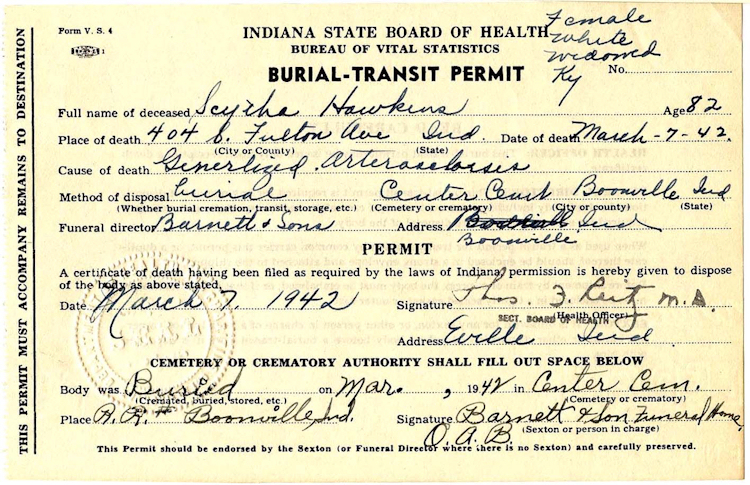 Form V. S. 4
INDIANA STATE BOARD OF HEALTH
BUREAU OF VITAL STATISTICS
BURIAL-TRANSIT PERMIT
Female
White
Widowed
Ky
No.
Full name of deceased Scytha Hawkins Age 82
Place of death 404 E. Fulton Ave Ind. Date of death March-7-42.
(City or County) (State)
Cause of death Generlized Arterosclosis
Method of disposal Burial Center Cem Boonville Ind
(Whether burial cremation, transit, storage, etc.) (Cemetery or crematory) (City or county) (State)
Funeral director Barnett & Sons Address Ind
Boonville
PERMIT
A certificate of death having been filed as required by the laws of Indiana, permission is hereby given to dispose
of the body as above stated,
Date March 7, 1942 Signature Thos. J. Reitz M.D.
(Health Officer)
SECT. BOARD OF HEALTH
Address Eville Ind
CEMETERY OR CREMATORY AUTHORITY SHALL FILL OUT SPACE BELOW
Body was Buried on Mar. , 1942 in Center Cem.
(Cremated, buried, stored, etc.) (Cemetery or crematory)
Place R.R. Boonville, Ind. Signature Barnett & Son Funeral Home
O.A.B. (Sexton or person in charge)
This Permit should be endorsed by the Sexton (or Funeral Director where there is no Sexton) and carefully preserved.
THIS PERMIT MUST ACCOMPANY REMAINS TO DESTINATION